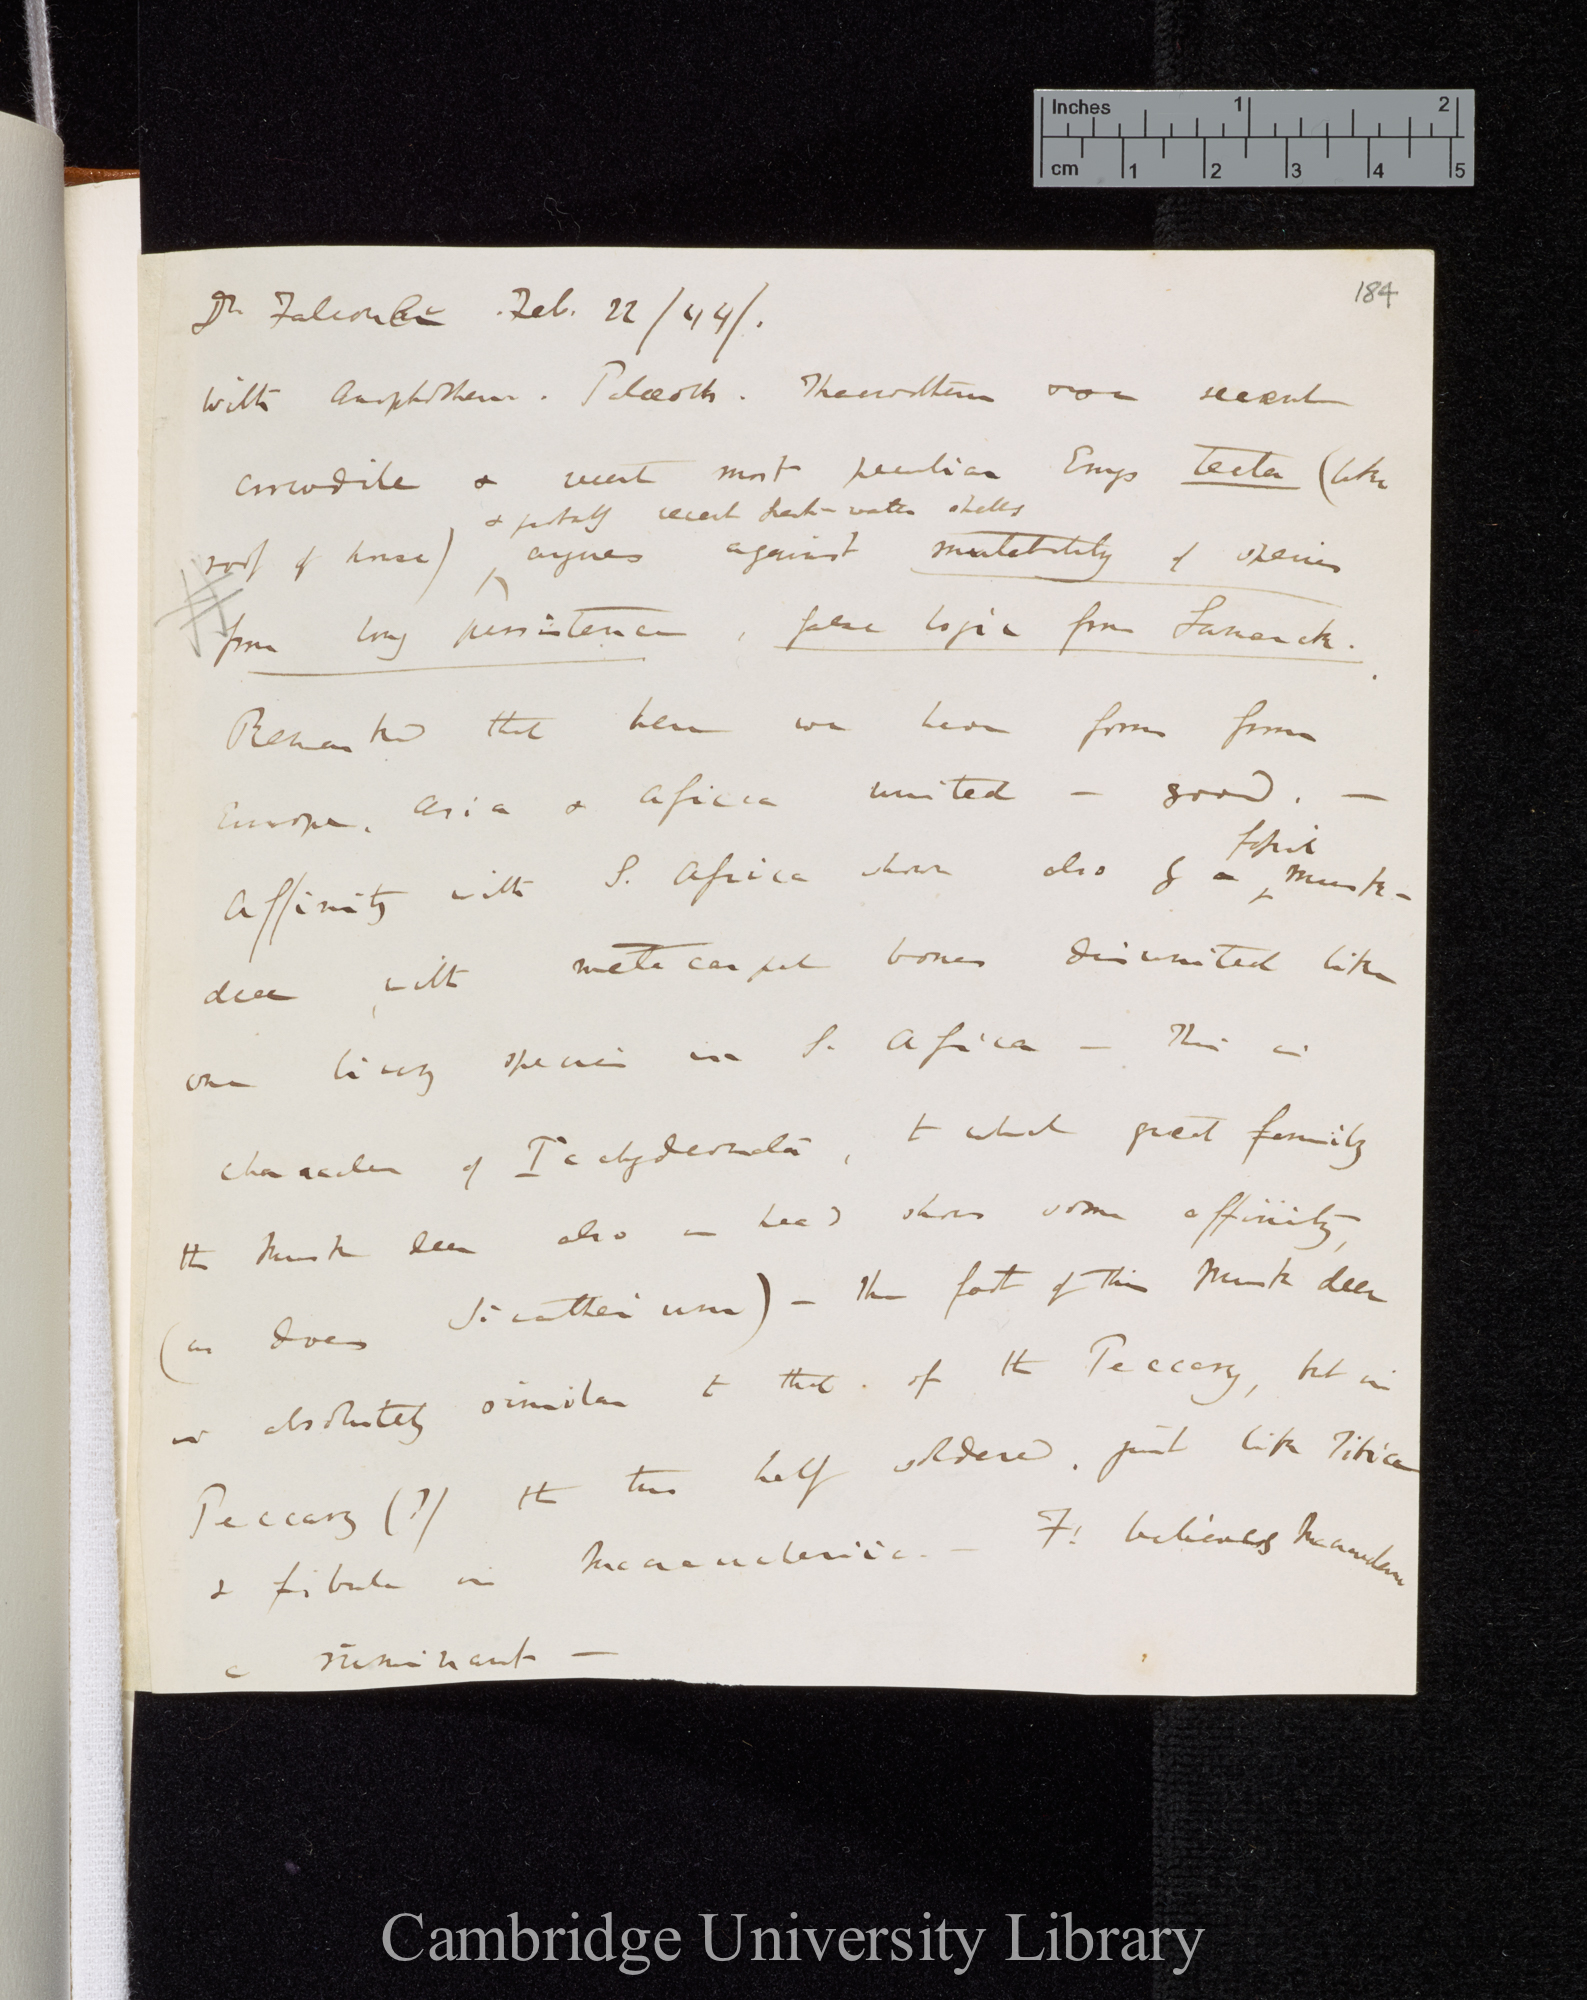 Inches 1 2
cm 1 2 3 4 5
184
Dr Falconer Feb. 22/44/.
with Anoplotherm. Palæoth. recent
crocodile & recent most peculiar Emys tecta (like
& probably recent fresh-water shells
roof of house) argues against mutability of species
from long persistence, false logic from Lamarck.
Remarked that here we have forms from
Europe, Asia & Africa united — good. —
fossil
Affinity with S. Africa shown also by a Musk-
deer with metacarpal bones disunited like
one living species in S. Africa — This is
character of Pachydermata, to which great family
the Musk deer also in head shows some affinity,
(as does Sivatherium) — The foot of this Musk deer
is absolutely similar to that of the Peccary, but in
Peccary (?) the two half soldered, just like Tibia
& fibula in Macrauchenia. — F. believes Macrauchenia
a ruminant —
Cambridge University Library